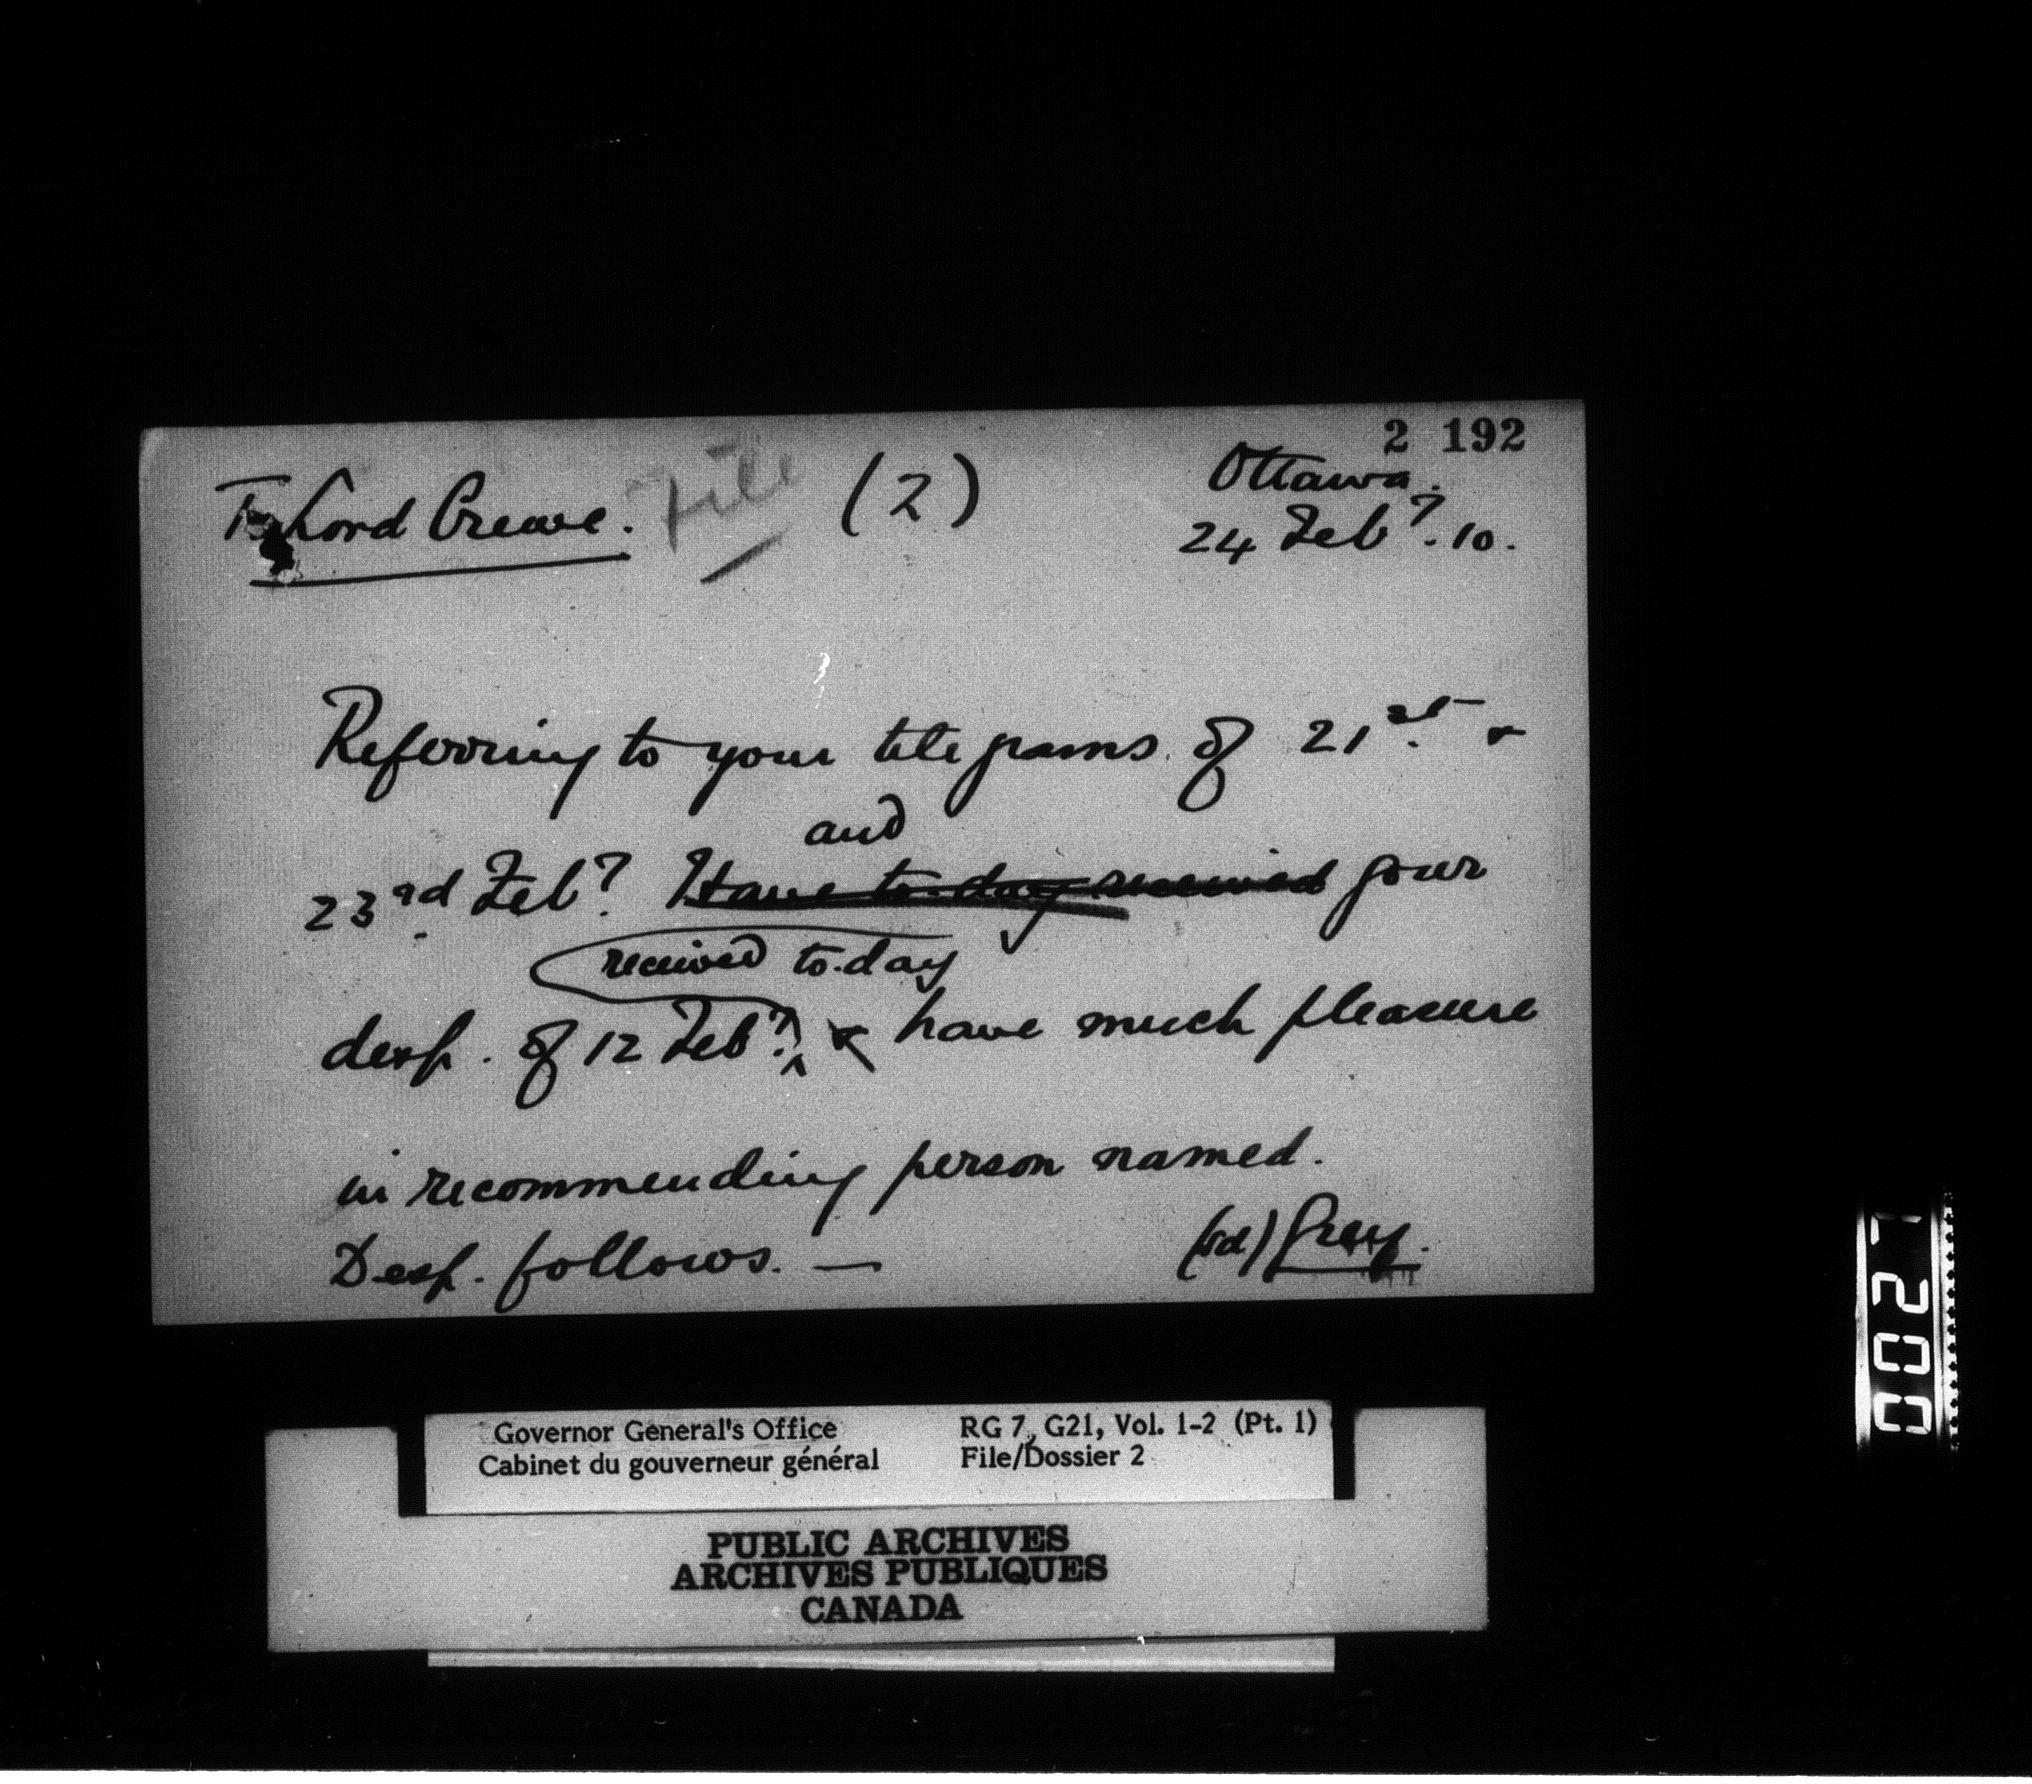 2 192
To Lord Crewe. File (2) Ottawa.
24 Feby. 10.
Referring to your telegrams of 21st &
and
23rd Feby. Have to-day received your
received to-day
desp. of 12 Feby. & have much pleasure
in recommending person named.
Desp. follows. — (sd) Grey.
Governor General's Office RG 7, G21, Vol. 1-2 (Pt. 1)
Cabinet du gouverneur général File/Dossier 2
PUBLIC ARCHIVES
ARCHIVES PUBLIQUES
CANADA
0027